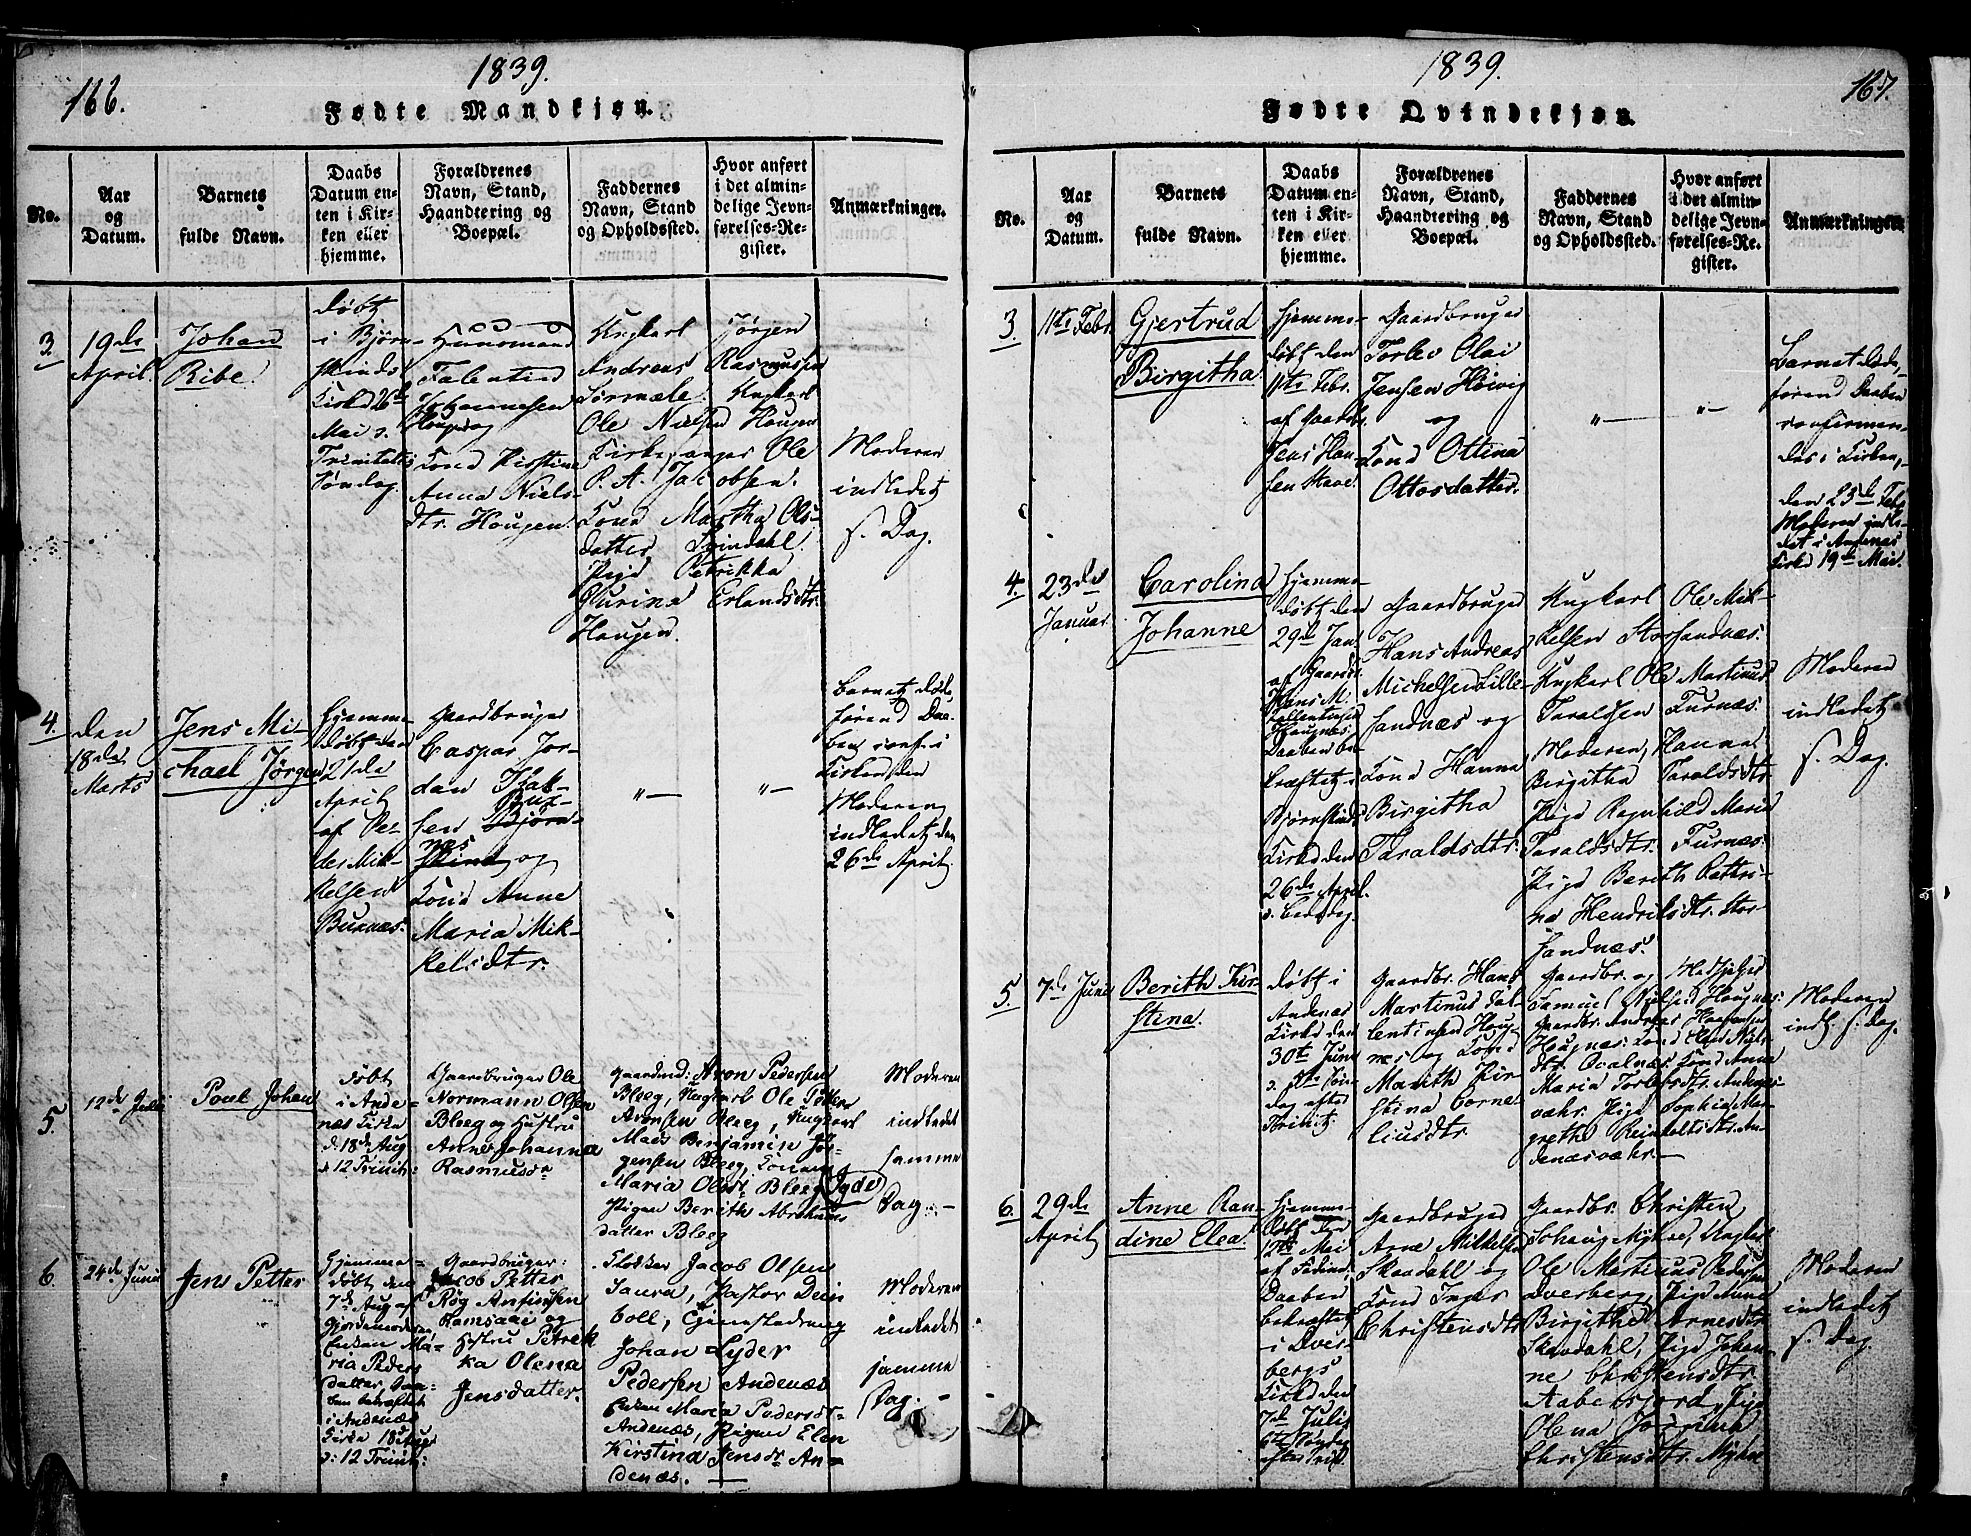 166.
1839.
Fødte Mandkjøn.
No.
Aar
og
Datum.
Barnets
fulde Navn.
Daabs
Datum en-
ten i Kir-
ken eller
hjemme.
Forældrenes
Navn, Stand,
Haandtering og
Boepæl.
Faddernes
Navn, Stand
og Opholdssted.
Hvor anført
i det almin-
delige Jevn-
førelses-Re-
gister.
Anmærkninger.
3.
19de
April.
Johan
Ribe.
døbt
i Bjørn-
skinds
Kirke 26de
Mai s.
Trinitatis
Søndag.
Huusmand
Falentin
Johannesen
Hougen og
Kone Kirstine
Anna Niels-
dtr. Hougen.
Ungkarl Jørgen
Andreas Rasmussen
Sørmæle. Ungkarl
Ole Nielsen Hougen
Kirkesanger Ole
P. A. Jacobsen.
Kone Martha Ols-
datter Svindahl.
Pige Petrikka
Gurine Erlandsdtr.
Hougen.
Moderen
indledet
s. Dag.
4.
den
18de
Marts
Jens Mi-
chael Jørgen
hjemme-
døbt den
21de
April
af Pe-
der Mik-
kelsen
Buknæs.
Gaardbruger
Caspar Jor-
dan Isak-
sen Bjørn-
Buk-
skind og
næs
Kone Anne
Maria Mik-
kelsdtr.
"—
"—
Barnet døde
førend Daa-
ben conf. i
Kirken den
Moderen
indledet den
26de April.
5.
12de Julii
Poul Johan
døbt
i Ande-
næs Kirke
d. 18de Aug
s 12 Trinit:
Gaardbruger Ole
Normann Olsen
Bleeg og Hustru
Anne Johanna
Rasmusdr
Gaardmd: Aron Pedersen
Bleeg, Ungkarl Ole Petter
Aronsen Bleeg, Ungkarl
Mads Benjamin Jør-
gensen Bleeg, Konerne
Maria Olsdr Bleeg
Pigen Berith Abrahams
datter Bleeg
Moderen
indledet
samme
Dag. -
6.
24de Junii
Jens Petter
Hjemme-
døbt den
7de Aug af
Gjordemoderen
Enken Ma-
ria Peders
datter, Daa-
ben bekræftet
i Andenæs
Kirke 18 Aug
s: 12 Trinit:
Gaardbruger:
Jacob Petter
Røg Antinsen
Ramsaae og
Hustru Petrek
ka Olena
Jensdatter.
Klokker Jacob Olsen
Saura, Pastor Dein
boll, Eginstedrung
Johan Lyder
Pedersen Andenæs
Enken Maria Pedersdr
Andenæs, Pigen Elen
Kirstina Jensdr An-
denæs. —
Moderen
indledet
samme
Dag. -
1839.
167.
Fødte Qvindekjøn.
No.
Aar
og
Datum.
Barnets
fulde Navn.
Daabs
Datum en-
ten i Kir-
ken eller
hjemme.
Forældrenes
Navn, Stand,
Haandtering og
Boepæl.
Faddernes
Navn, Stand
og Opholdssted.
Hvor anført
i det almin-
delige Jevn-
førelses-Re-
gister.
Anmærkninger.
3.
11te Febr.
Gjertrud
Birgitha
hjemme-
døbt den
11te Febr.
af Gaardb.
Jens Han-
sen Haae.
Gaardbruger
Torlev Olai
Jensen Høivig
og
Kone Ottina
Ottosdatter.
"—
"—
Barnet døde,
førend Daaben
confirmere-
des i Kirken,
den 25de Feb.
Moderen indle-
det i Andenæs
Kirke 19de Mai.
4.
23de
Januar.
Carolina
Johanne
hjemme-
døbt den
29de Jan.
af Gaardb.
Hans M.
Fallentinsen
Haugnæs.
Daaben be-
kræftet i
Bjørnskinds
Kirke den
26de April.
s. Bededag.
Gaardbruger
Hans Andreas
Michelsen Lille-
sandnæs og
Kone Hanna
Birgitha
Taraldsdtr.
Ungkarl Ole Mik-
kelsen Storsandnæs.
Ungkarl Ole Martinus
Taraldsen Furnæs.
Moderen, Hanna
Birgitha Taraldsdtr.
Pige Ragnhild Maria
Taraldsdtr. Furnæs.
Pige Berith Pettri-
ne Hendriksdtr. Stor-
sandnæs.
Moderen
indledet
s. Dag.
5.
7de Juni
Berith Kir-
stina.
døbt i
Andenæs
Kirke den
30te Juni
s. 5te Søn-
dag efter
Trinit.
Gaardbr. Hans
Martinus Fal-
lentinsen Houg-
næs og Kone
Marith Kir-
stina Corne-
liusdtr.
Gaardbr. og Medhjelper
Samuel Nielsen Hougnæs.
Gaardbr. Andreas Hansen
Hougnæs. Kone Elen Niels-
dtr. Kone Anna
Maria Torlefsdtr. Andenæs-
væhr. Pige Sophia Mar-
grethe Reinholtsdtr. An-
denæsvæhr.—
Moderen
indl. s. Dag.
6.
29de
April
Anne Ran-
dine Elea.
hjemme-
døbt den
12te Mai
af
Daaben
bekræftet
i Dver-
bergs
Kirke den
7de Juli
6te Søndag
efter Trin.
Gaardbruger
Arne Mikkelsen
Skavdahl og
Kone Inger
Christensdtr.
Gaardbr. Christen
Johans. Myhre, Ungkarl
Ole Martinus Pedersen
Dverberg, Pige Anne
Birgithe Arnesdtr.
Skavdahl, Pige Johan-
ne Christensdtr.
Aabersjord, Pige
Olena Jørgine
Christensdtr. Myhre
Moderen
indledet
s. Dag.